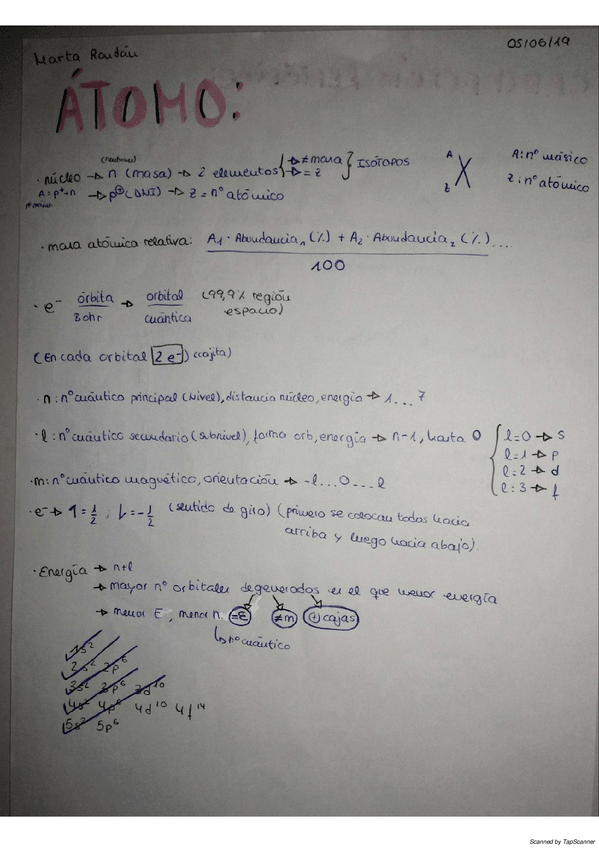 Marta Roudán
05/06/19
ÁTOMO:
(neutrones)
· núcleo → n (masa) → 2 elementos { → ≠ masa } ISÓTOPOS
→ = z
A = p⁺ + n → p⊕ (DNI) → z = nº atómico
A
X
z
A: nº másico
Z: nº atómico
· masa atómica relativa: A₁ · Abundancia₁ (%) + A₂ · Abundancia₂ (%) ...
100
· e⁻ órbita → orbital (99,9% región
Bohr cuántica espacio)
(En cada orbital 2 e⁻) (cajita)
· n: nº cuántico principal (Nivel), distancia núcleo, energía → 1 ... 7
· l: nº cuántico secundario (subnivel), forma orb, energía → n-1, hasta 0 { l=0 → s
l=1 → p
l=2 → d
l=3 → f
· m: nº cuántico magnético, orientación → -l ... 0 ... l
· e⁻ → 1 = 1/2 ; ⇂ = -1/2 (sentido de giro) (primero se colocan todas hacia
arriba y luego hacia abajo).
· Energía → n+l
→ mayor nº orbitales degenerados es el que menor energía
→ menor E, menor n. =E ≠m (+) cajas
↳ nº cuántico
1s²
2s² 2p⁶
3s² 3p⁶ 3d¹⁰
4s² 4p⁶ 4d¹⁰ 4f¹⁴
5s² 5p⁶
Scanned by TapScanner